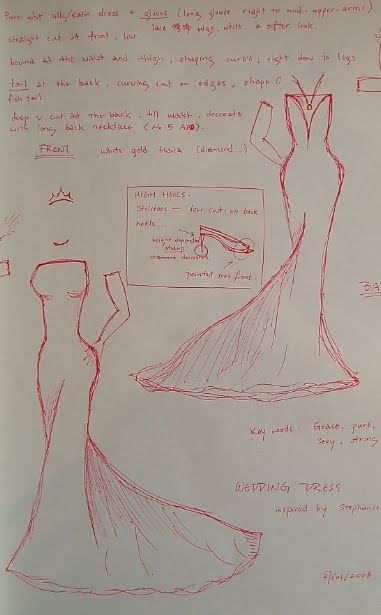 Pure wht silk/satin dress + gloves (long gloves right to mid-upper-arm)
straight cut at front, low lace edge, white a softer look.
bound at the waist and thigh, shaping curve, right down to legs
tail at the back, curving out on edges, shape of
fish tail
deep U cut at the back, till waist, decorate
with long back necklace
FRONT
white gold tiara (diamond...)
HIGH HEELS.
Stilettoes — low cut on back
heels...
height dependent
strap
diamond decorated
pointed toes front.
BA
Key words: Grace, pure,
sexy, strong
WEDDING DRESS
inspired by Stephanie
27/01/2008